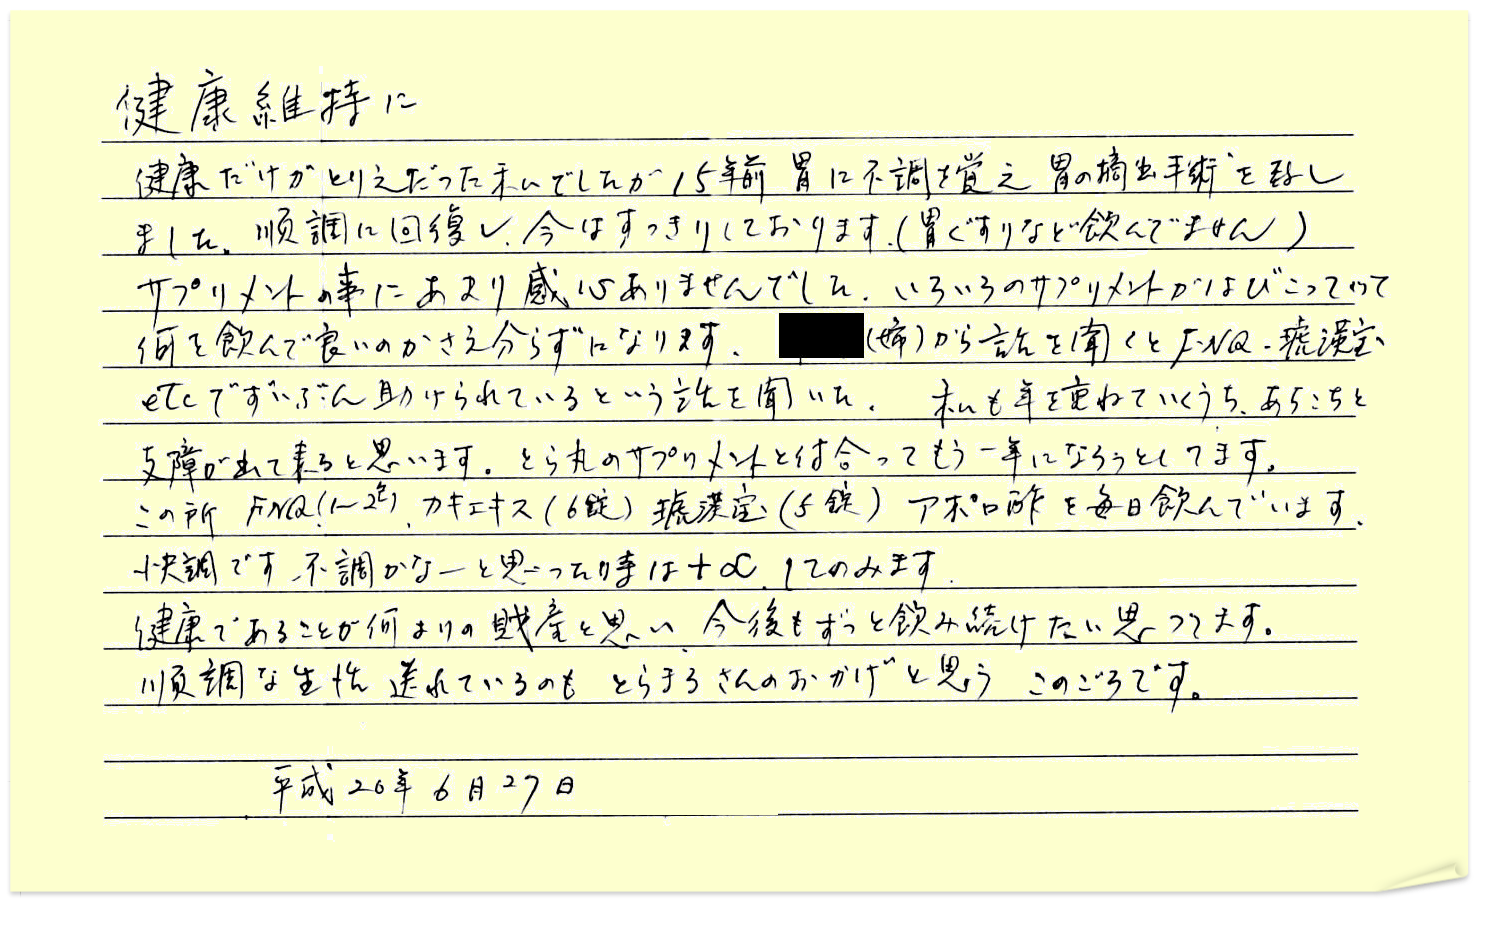 健康維持に
健康だけがとりえだった私でしたが15年前 胃に不調を覚え 胃の摘出手術を致し
ました。順調に回復し、今はすっきりしております。(胃ぐすりなど飲んでません)
サプリメントの事にあまり感心ありませんでした。いろいろのサプリメントがはびこってゝて
何を飲んで良いのかさえ分らずになります。(姉)から話を聞くとFNQ・琥漢宝
etcでずいぶん助けられているという話を聞いた。私も年を重ねていくうち、あちこちと
支障が出て来ると思います。とら丸のサプリメントと付合ってもう一年になろうとしてます。
この所 FNQ(1〜2包)、カキエキス(6錠)琥漢宝(5錠)アポロ酢を毎日飲んでいます。
快調です、不調かなーと思った時は+∝、してのみます。
健康であることが何よりの財産と思い、今後もずっと飲み続けたい思ってます。
順調な生活送れているのも とらまろさんのおかげと思う このごろです。
平成26年6月27日